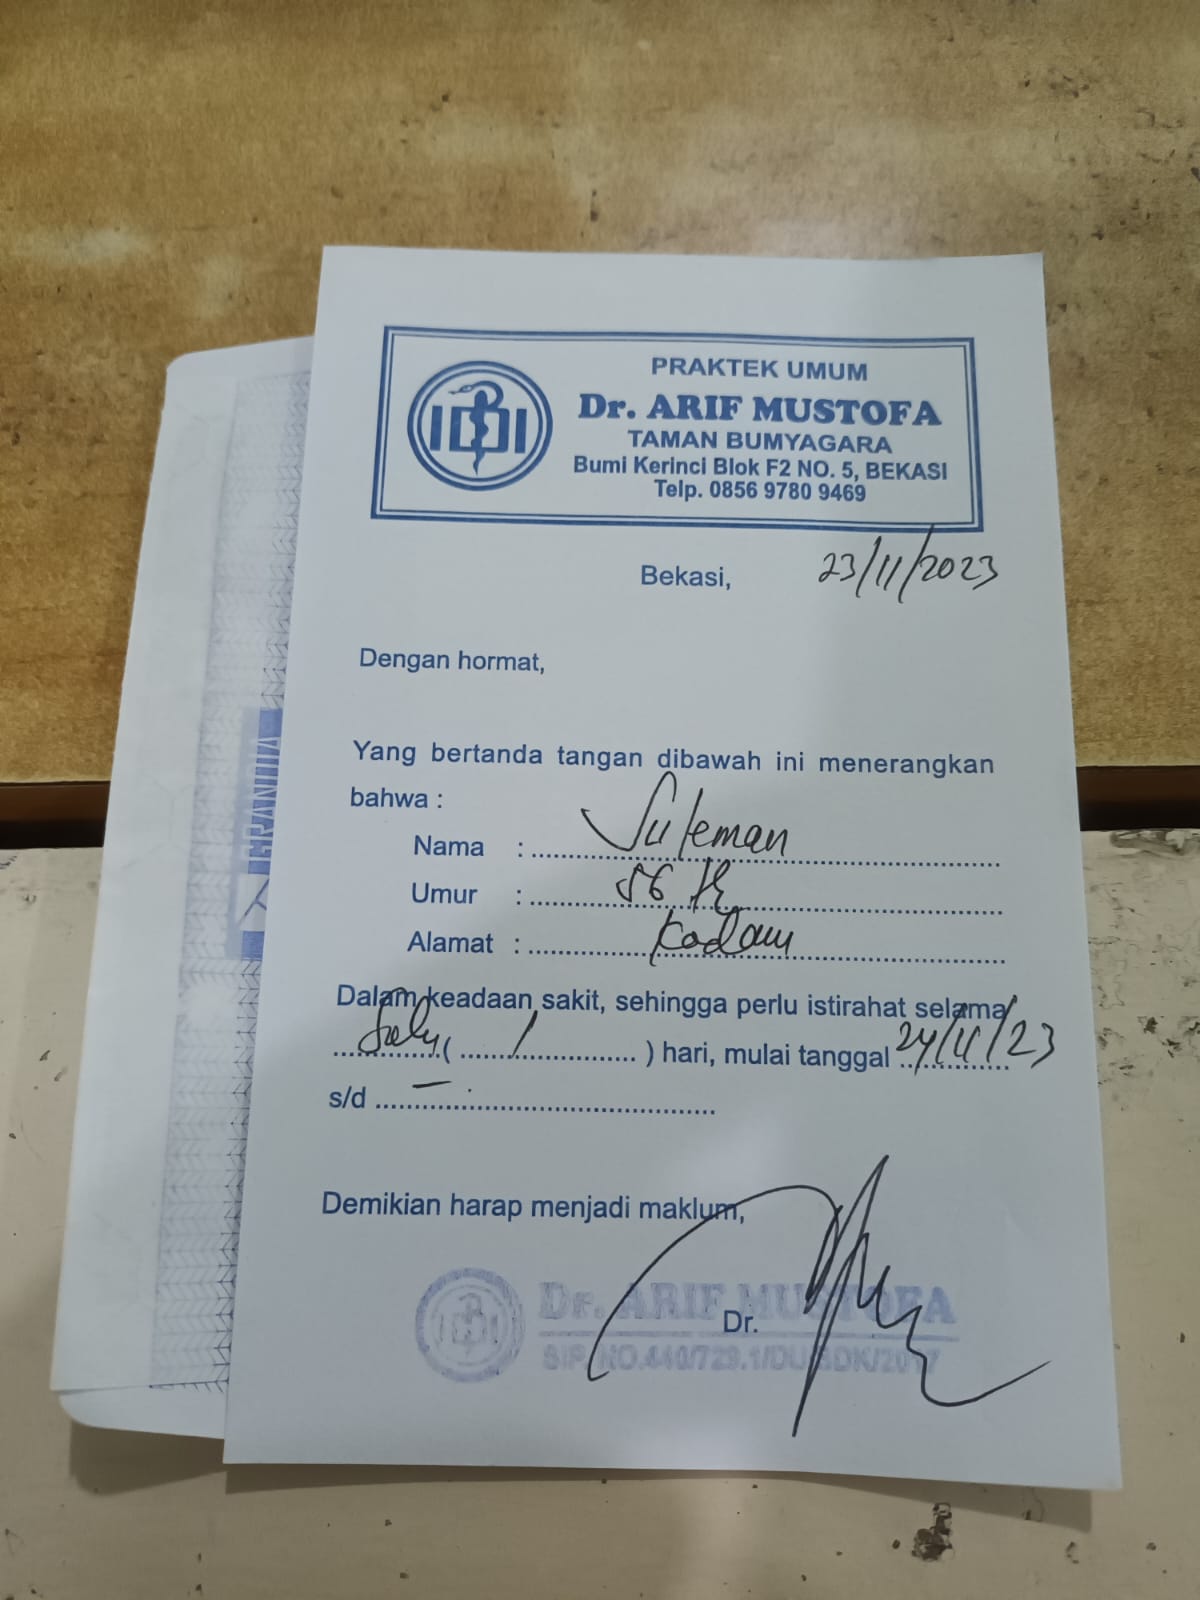 PRAKTEK UMUM
Dr. ARIF MUSTOFA
TAMAN BUMYAGARA
Bumi Kerinci Blok F2 NO. 5, BEKASI
Telp. 0856 9780 9469
IDI
Bekasi, 23/11/2023
Dengan hormat,
Yang bertanda tangan dibawah ini menerangkan
bahwa :
Nama : Suleman
Umur : 56 th
Alamat : Kodau
Dalam keadaan sakit, sehingga perlu istirahat selama
Satu ( 1 ) hari, mulai tanggal 24/11/23
s/d -
Demikian harap menjadi maklum,
Dr. ARIF MUSTOFA
Dr.
SIP. NO.440/729.1/DU/SDK/2017
GRANDIA